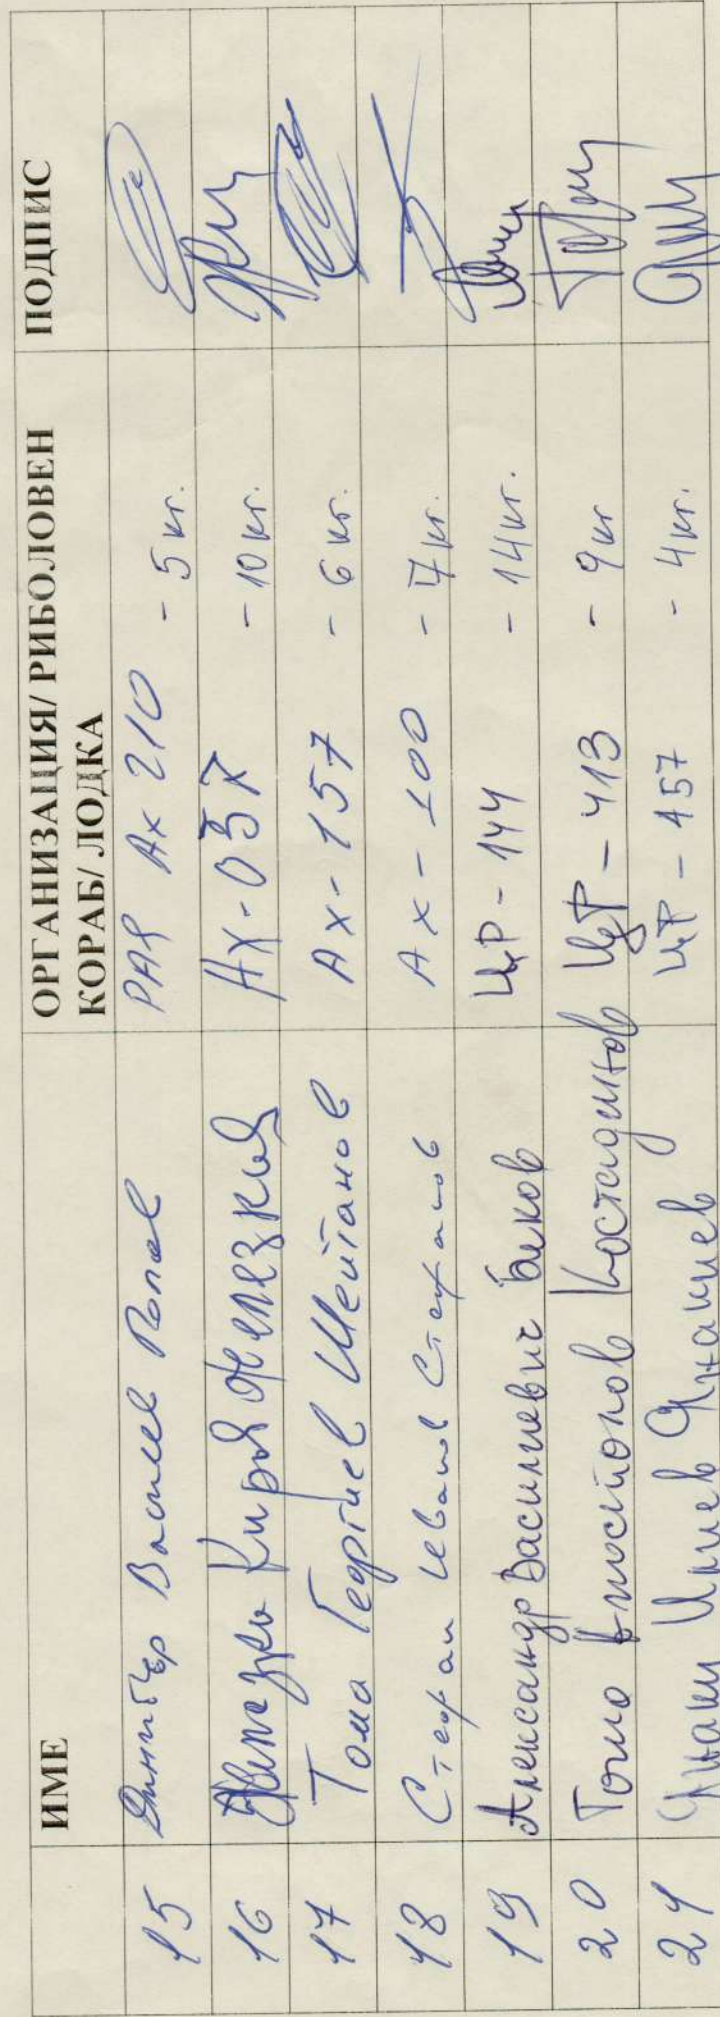 ИМЕ ОРГАНИЗАЦИЯ/ РИБОЛОВЕН КОРАБ/ ЛОДКА ПОДПИС
15 Димитър Василев Попов РАЯ Ах 210 - 5 кг.
16 Ах-057 - 10 кг.
17 Тома Георгиев Шейтанов Ах-157 - 6 кг.
18 Стефан Иванов Стефанов Ах-100 - 7 кг.
19 Александр Василиевич Биков ЦР-144 - 14 кг.
20 Костадинов ЦР-413 - 9 кг
21 Янаки Илиев Янакиев ЦР-457 - 4 кг.